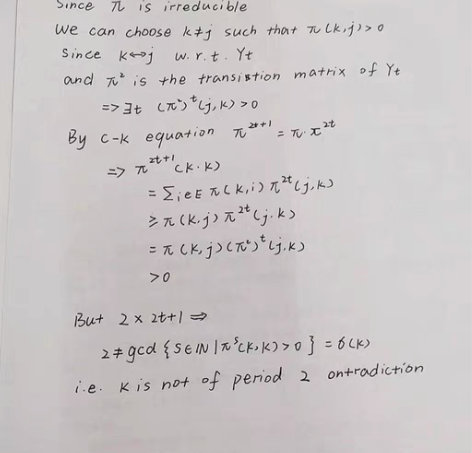 Since π is irreducible
We can choose k≠j such that π(k,j)>0
Since k↔j w.r.t. Yt
and π² is the transistion matrix of Yt
=> ∃t (π²)ᵗ(j,k)>0
By C-K equation π²ᵗ⁺¹ = π·π²ᵗ
=> π²ᵗ⁺¹(k.k)
= Σi∈E π(k,i) π²ᵗ(j,k)
≥ π(k,j) π²ᵗ(j.k)
= π(k,j)(π²)ᵗ(j.k)
>0
But 2 × 2t+1 ⇒
2 ≠ gcd {S∈IN | πˢ(k,k)>0} = δ(k)
i.e. k is not of period 2 ontradiction